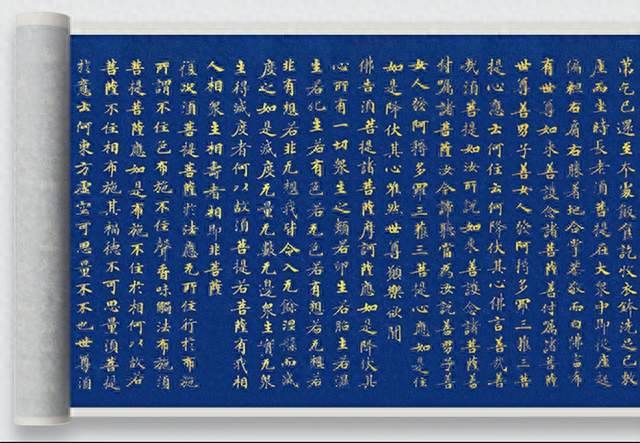 第乞已還至本處飯食訖收衣鉢洗足已敷
座而坐時長老須菩提在大眾中即從座起
偏袒右肩右膝著地合掌恭敬而白佛言希
有世尊如來善護念諸菩薩善付囑諸菩薩
世尊善男子善女人發阿耨多羅三藐三菩
提心應云何住云何降伏其心佛言善哉善
哉須菩提如汝所說如來善護念諸菩薩善
付囑諸菩薩汝今諦聽當為汝說善男子善
女人發阿耨多羅三藐三菩提心應如是住
如是降伏其心唯然世尊願樂欲聞
佛告須菩提諸菩薩摩訶薩應如是降伏其
心所有一切眾生之類若卵生若胎生若濕
生若化生若有色若无色若有想若无想若
非有想若非无想我皆令入无餘涅槃而滅
度之如是滅度无量无數无邊眾生實无眾
生得滅度者何以故須菩提若菩薩有我相
人相眾生相壽者相即非菩薩
復次須菩提菩薩於法應无所住行於布施
所謂不住色布施不住聲香味觸法布施須
菩提菩薩應如是布施不住於相何以故若
菩薩不住相布施其福德不可思量須菩提
於意云何東方虛空可思量不不也世尊須